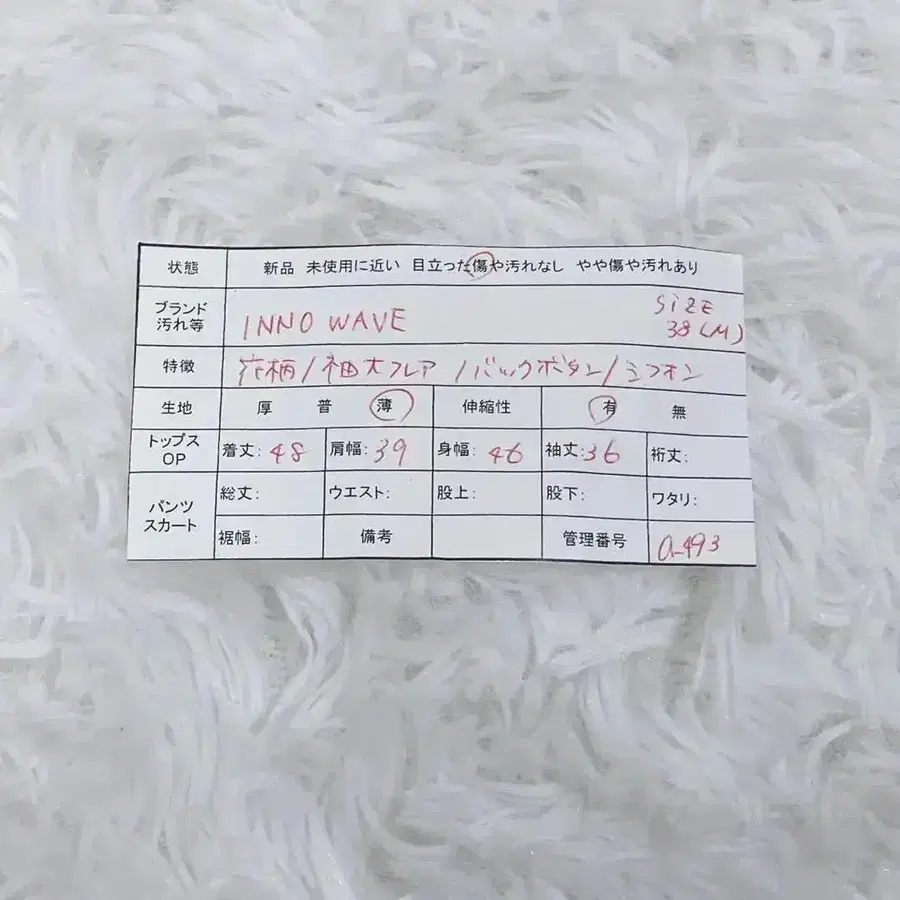 状態 新品 未使用に近い 目立った傷や汚れなし やや傷や汚れあり
ブランド
汚れ等 INNO WAVE SIZE
38(M)
特徴 花柄/袖大フレア/バックボタン/シフォン
生地 厚 普 薄 伸縮性 有 無
トップス
OP 着丈:48 肩幅:39 身幅:46 袖丈:36 裄丈:
パンツ
スカート 総丈: ウエスト: 股上: 股下: ワタリ:
裾幅: 備考 管理番号 a-493